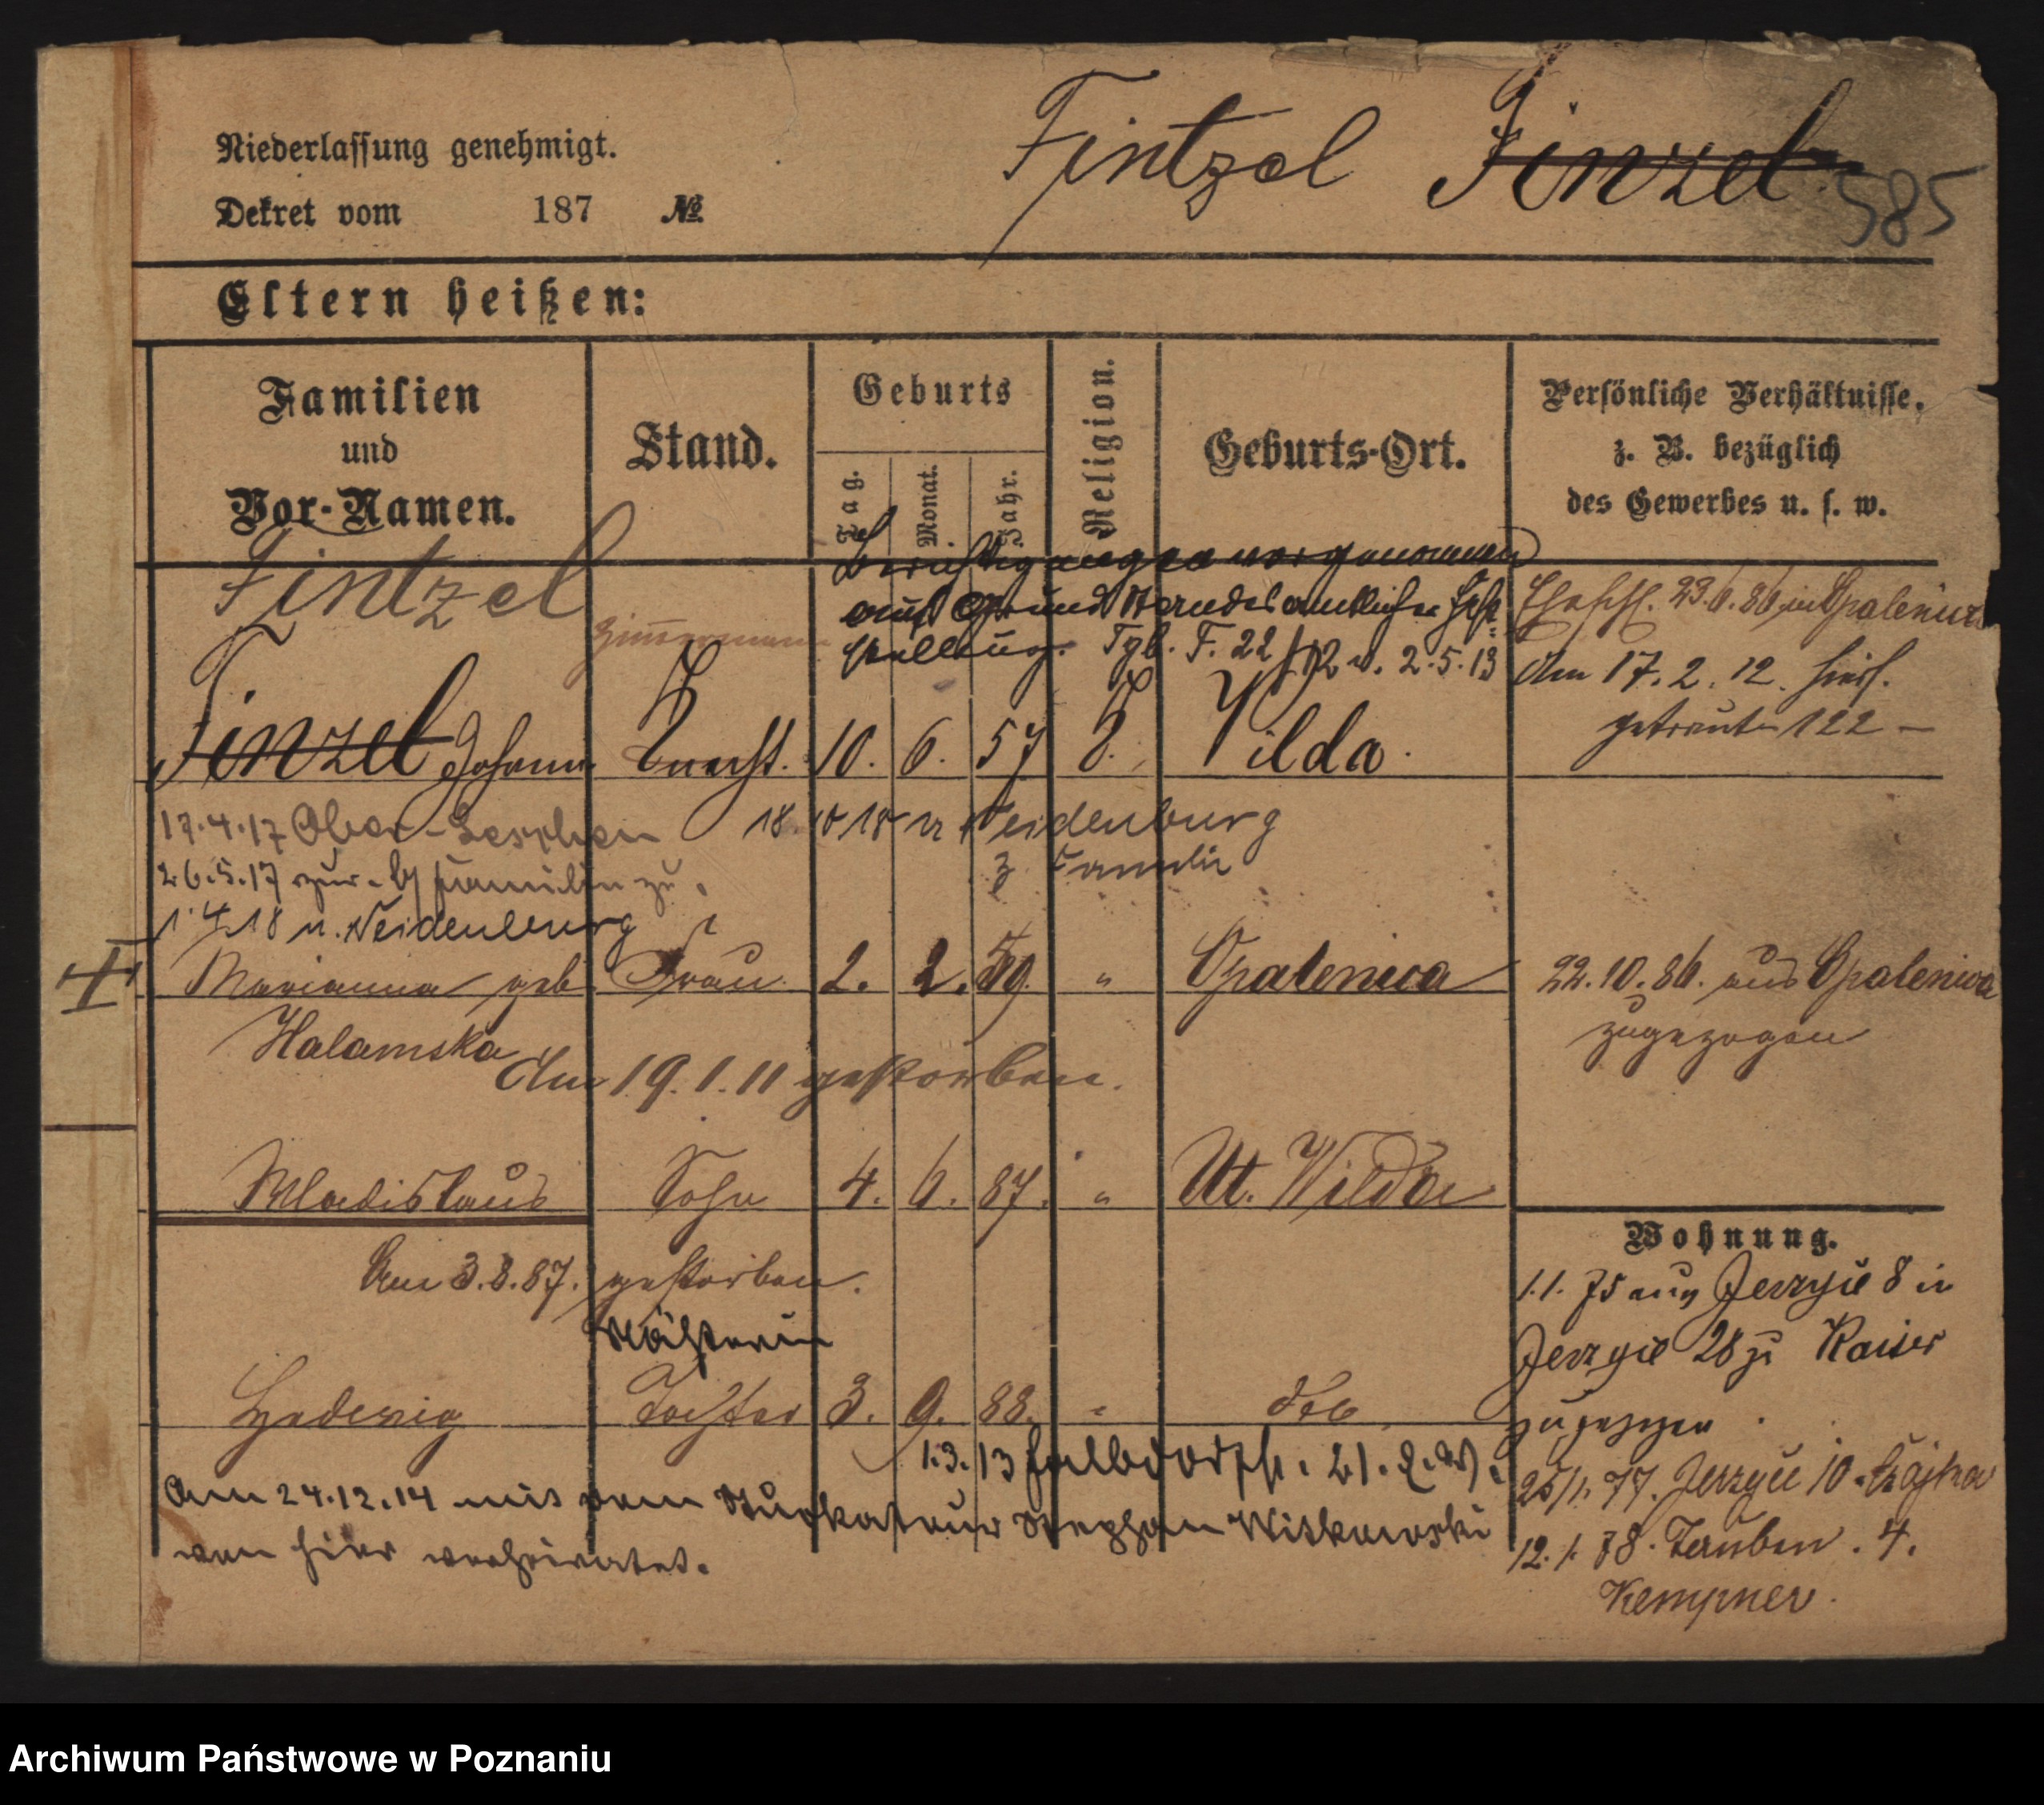 Niederlassung genehmigt.
Dekret vom 187 No
Fintzel Finzel
585
Eltern heißen:
Familien
und
Vor-Namen.
Stand.
Geburts
Tag.
Monat.
Jahr.
Religion.
Geburts-Ort.
Persönliche Verhältnisse,
z. B. bezüglich
des Gewerbes u. s. w.
Fintzel
Zimmermann
Berichtigungen vorgenommen
auf Grund standesamtlicher Fest-
stellung. Tgb. F. 22/12 v. 2.5.13
Finzel Johann Knecht. 10. 6. 57 Wilda.
23.6.86 in Opalenica
Am 17.2.12. hies.
getraut 122 —
17.4.17 Ober-
26.5.17 zur Familie zu.
1.4.18 n. Neidenburg
18 Neidenburg
z Familie
Marianna geb. Frau. 2. 2. 59. " Opalenica
Halamska
Am 19.1.11 gestorben.
22.10.86. aus Opalenica
zugezogen
Wladislaus Sohn 4. 6. 87. " Ut. Wilda
Am 3.8.87. gestorben.
Näherin
Hedwig Tochter 3. 9. 88. " dto
1.3.13
Am 24.12.14 mit dem Stuckateur Stephan Witkowski
von hier verheiratet.
Wohnung.
1.1.75 aus Jerzyce 8 in
Jerzyce 28 zu Kaiser
zugezogen
25/1.77. Jerzyce 10
12.1.78. 4.
Kempner.
Archiwum Państwowe w Poznaniu